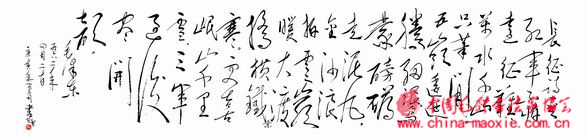 长征诗
红军不怕
远征难
万水千山
只等闲
五岭逶迤
腾细浪乌
蒙磅礴
走泥丸
金沙浪
拍云崖
暖大渡
桥横铁索
寒更喜
岷山千里
雪三军
过后
尽开
颜
毛泽东
www.china-maoxie.com